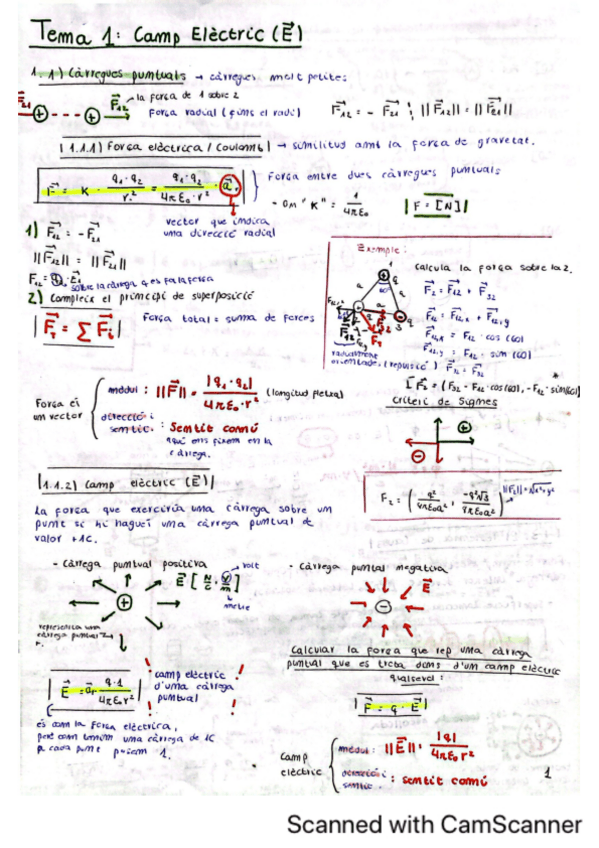 Tema 1: Camp Elèctric (E⃗)
1.1) Càrregues puntuals → càrregues molt petites
la força de 1 sobre 2
F⃗12
Força radial (fins el radi)
F⃗12 = - F⃗21 ; ||F⃗12|| = ||F⃗21||
1.1.1) Força elèctrica / Coulomb → similitud amb la força de gravetat.
F⃗ = K · q1·q2 / r² = q1·q2 / 4πε0·r² · a⃗r
Força entre dues càrregues puntuals
- on "K" = 1 / 4πε0
|F = [N]|
vector que indica
una direcció radial
1) F⃗12 = - F⃗21
||F⃗12|| = ||F⃗21||
sobre la càrrega q es fa la força
2) Compleix el principi de superposició
F⃗T = Σ F⃗i
Força total = suma de forces
Exemple:
Calcula la força sobre la 2.
F⃗2 = F⃗12 + F⃗32
F⃗12 = F⃗12,x + F⃗12,y
F⃗12,x = F12 · cos (60)
F⃗12,y = F12 · sin (60)
radialment
orientada (repulsió)
F⃗2 = (F32 - F12·cos(60), -F12·sin(60))
Criteri de Signes
Força és
un vector
mòdul: ||F⃗|| = |q1·q2| / 4πε0·r² (longitud fletxa)
direcció i
sentit: Sentit comú
aquí ens fixem en la
càrrega.
1.1.2) Camp elèctric (E⃗)
La força que exerciria una càrrega sobre un
punt si hi hagués una càrrega puntual de
valor +1C.
F2 = (q² / 4πε0a², -q²√3 / 8πε0a²)
- Càrrega puntual positiva
E⃗ [N/C, V/m]
volt
metre
representa una
càrrega puntual
- Càrrega puntual negativa
E⃗
E⃗ = a⃗r q·1 / 4πε0r²
! camp elèctric !
d'una càrrega
! puntual !
és com la Força elèctrica,
però com tenim una càrrega de 1C
a cada punt posem 1.
Calcular la força que rep una càrrega
puntual que es troba dins d'un camp elèctric
qualsevol:
F⃗ = q · E⃗
Camp
elèctric
mòdul: ||E⃗|| = |q| / 4πε0r²
direcció i
sentit: sentit comú
1
Scanned with CamScanner